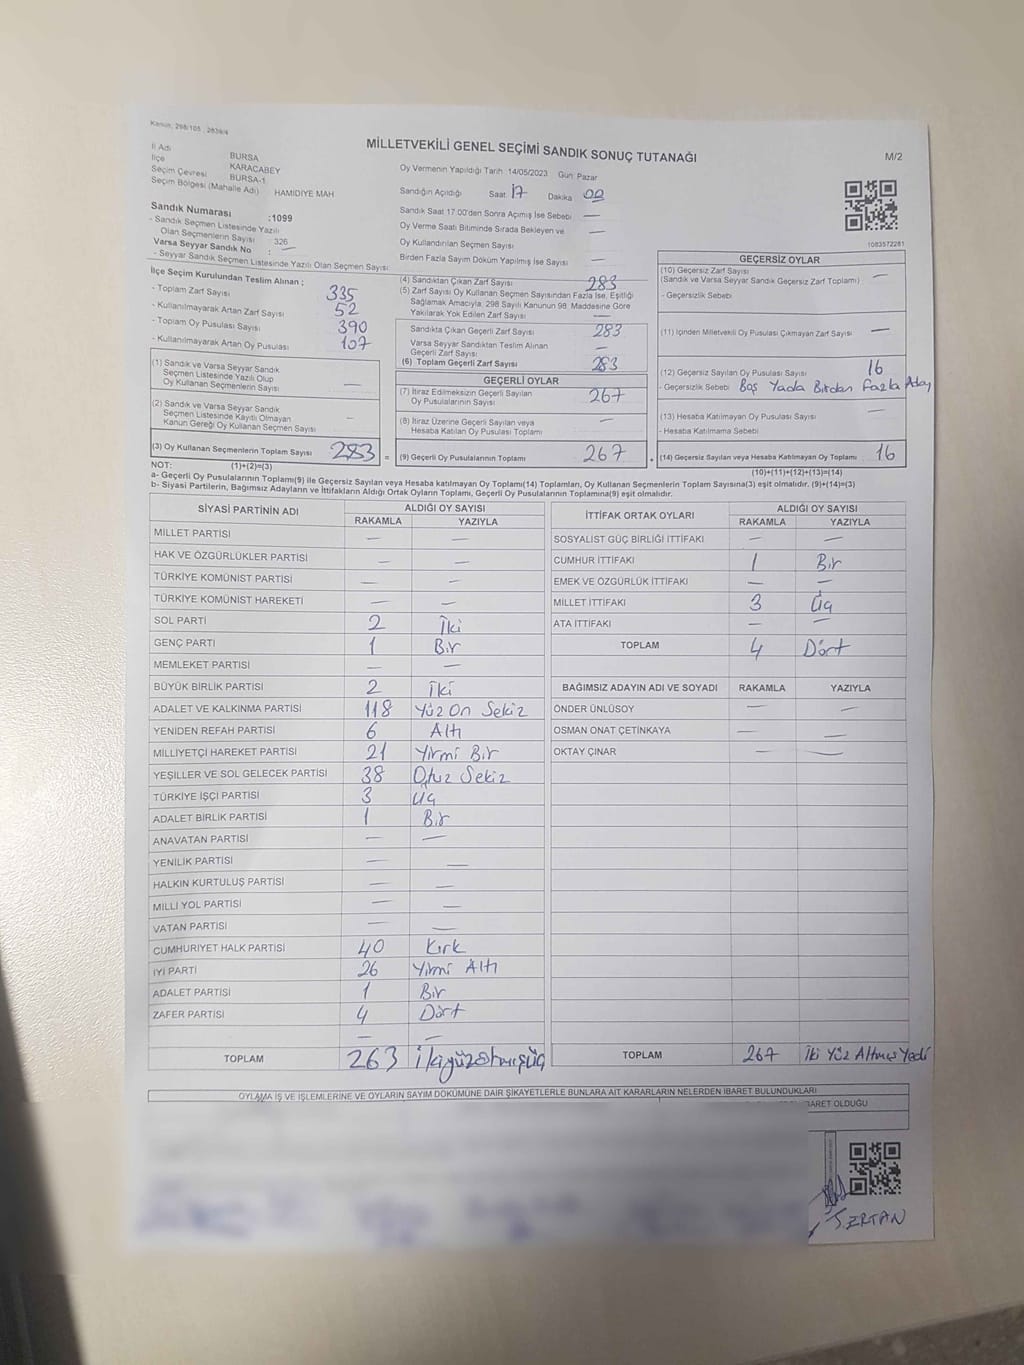 Kanun, 298/105 , 2839/4
MİLLETVEKİLİ GENEL SEÇİMİ SANDIK SONUÇ TUTANAĞI
M/2
İl Adı BURSA
İlçe KARACABEY
Seçim Çevresi BURSA-1
Seçim Bölgesi (Mahalle Adı) HAMİDİYE MAH
Oy Vermenin Yapıldığı Tarih 14/05/2023 Gün Pazar
Sandığın Açıldığı Saat 17 Dakika 00
Sandık Saat 17:00'den Sonra Açılmış İse Sebebi —
Oy Verme Saati Bitiminde Sırada Bekleyen ve
Oy Kullandırılan Seçmen Sayısı —
Birden Fazla Sayım Döküm Yapılmış İse Sayısı —
1083572281
Sandık Numarası :1099
- Sandık Seçmen Listesinde Yazılı
Olan Seçmenlerin Sayısı 326
Varsa Seyyar Sandık No : —
- Seyyar Sandık Seçmen Listesinde Yazılı Olan Seçmen Sayısı
İlçe Seçim Kurulundan Teslim Alınan :
- Toplam Zarf Sayısı 335
- Kullanılmayarak Artan Zarf Sayısı 52
- Toplam Oy Pusulası Sayısı 390
- Kullanılmayarak Artan Oy Pusulası 107
(1) Sandık ve Varsa Seyyar Sandık
Seçmen Listesinde Yazılı Olup
Oy Kullanan Seçmenlerin Sayısı —
(2) Sandık ve Varsa Seyyar Sandık
Seçmen Listesinde Kayıtlı Olmayan
Kanun Gereği Oy Kullanan Seçmen Sayısı —
(3) Oy Kullanan Seçmenlerin Toplam Sayısı 283 =
(1)+(2)=(3)
(4) Sandıktan Çıkan Zarf Sayısı 283
(5) Zarf Sayısı Oy Kullanan Seçmen Sayısından Fazla İse, Eşitliği
Sağlamak Amacıyla, 298 Sayılı Kanunun 98. Maddesine Göre
Yakılarak Yok Edilen Zarf Sayısı —
Sandıkta Çıkan Geçerli Zarf Sayısı 283
Varsa Seyyar Sandıktan Teslim Alınan
Geçerli Zarf Sayısı —
(6) Toplam Geçerli Zarf Sayısı 283
GEÇERLİ OYLAR
(7) İtiraz Edilmeksizin Geçerli Sayılan
Oy Pusulalarının Sayısı 267
(8) İtiraz Üzerine Geçerli Sayılan veya
Hesaba Katılan Oy Pusulası Toplamı —
(9) Geçerli Oy Pusulalarının Toplamı 267
GEÇERSİZ OYLAR
(10) Geçersiz Zarf Sayısı
(Sandık ve Varsa Seyyar Sandık Geçersiz Zarf Toplamı) —
- Geçersizlik Sebebi
(11) İçinden Milletvekili Oy Pusulası Çıkmayan Zarf Sayısı —
(12) Geçersiz Sayılan Oy Pusulası Sayısı 16
- Geçersizlik Sebebi Boş Yada Birden Fazla Aday
(13) Hesaba Katılmayan Oy Pusulası Sayısı —
- Hesaba Katılmama Sebebi
(14) Geçersiz Sayılan veya Hesaba Katılmayan Oy Toplamı 16
(10)+(11)+(12)+(13)=(14)
NOT:
a- Geçerli Oy Pusulalarının Toplamı(9) ile Geçersiz Sayılan veya Hesaba katılmayan Oy Toplamı(14) Toplamları, Oy Kullanan Seçmenlerin Toplam Sayısına(3) eşit olmalıdır. (9)+(14)=(3)
b- Siyasi Partilerin, Bağımsız Adayların ve İttifakların Aldığı Ortak Oyların Toplamı, Geçerli Oy Pusulalarının Toplamına(9) eşit olmalıdır.
SİYASİ PARTİNİN ADI ALDIĞI OY SAYISI
RAKAMLA YAZIYLA
MİLLET PARTİSİ — —
HAK VE ÖZGÜRLÜKLER PARTİSİ — —
TÜRKİYE KOMÜNİST PARTİSİ — —
TÜRKİYE KOMÜNİST HAREKETİ — —
SOL PARTİ 2 İki
GENÇ PARTİ 1 Bir
MEMLEKET PARTİSİ — —
BÜYÜK BİRLİK PARTİSİ 2 İki
ADALET VE KALKINMA PARTİSİ 118 Yüz On Sekiz
YENİDEN REFAH PARTİSİ 6 Altı
MİLLİYETÇİ HAREKET PARTİSİ 21 Yirmi Bir
YEŞİLLER VE SOL GELECEK PARTİSİ 38 Otuz Sekiz
TÜRKİYE İŞÇİ PARTİSİ 3 Üç
ADALET BİRLİK PARTİSİ 1 Bir
ANAVATAN PARTİSİ — —
YENİLİK PARTİSİ — —
HALKIN KURTULUŞ PARTİSİ — —
MİLLİ YOL PARTİSİ — —
VATAN PARTİSİ — —
CUMHURİYET HALK PARTİSİ 40 Kırk
İYİ PARTİ 26 Yirmi Altı
ADALET PARTİSİ 1 Bir
ZAFER PARTİSİ 4 Dört
— —
TOPLAM 263 ikiyüzatmışüç
İTTİFAK ORTAK OYLARI ALDIĞI OY SAYISI
RAKAMLA YAZIYLA
SOSYALİST GÜÇ BİRLİĞİ İTTİFAKI — —
CUMHUR İTTİFAKI 1 Bir
EMEK VE ÖZGÜRLÜK İTTİFAKI — —
MİLLET İTTİFAKI 3 Üç
ATA İTTİFAKI — —
TOPLAM 4 Dört
BAĞIMSIZ ADAYIN ADI VE SOYADI RAKAMLA YAZIYLA
ÖNDER ÜNLÜSOY — —
OSMAN ONAT ÇETİNKAYA — —
OKTAY ÇINAR — —
TOPLAM 267 İki Yüz Altmış Yedi
OYLAMA İŞ VE İŞLEMLERİNE VE OYLARIN SAYIM DÖKÜMÜNE DAİR ŞİKAYETLERLE BUNLARA AİT KARARLARIN NELERDEN İBARET BULUNDUKLARI
BARET OLDUĞU
S. ERTAN